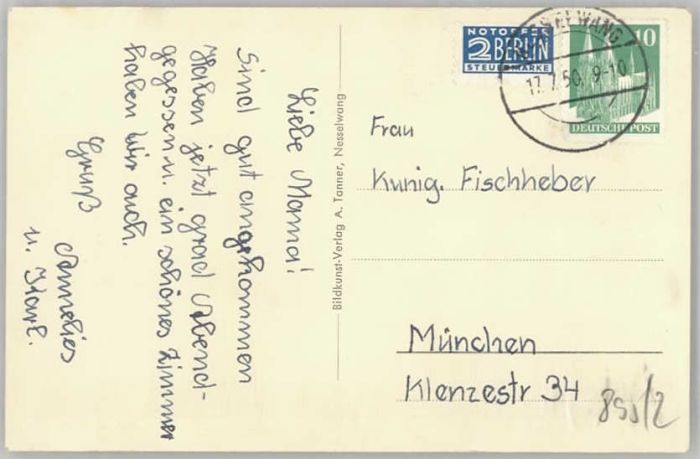 Liebe Mama!
Sind gut angekommen
Haben jetzt grad Abend-
gegessen u. ein schönes Zimmer
haben wir auch.
Gruß
Annelies
u. Karl.
Bildkunst-Verlag A. Tanner, Nesselwang
NOTOPFER
2 BERLIN
STEUERMARKE
NESSELWANG
17.7.50. 9-10
10
DEUTSCHE POST
Frau
Kunig. Fischheber
München
Klenzestr 34